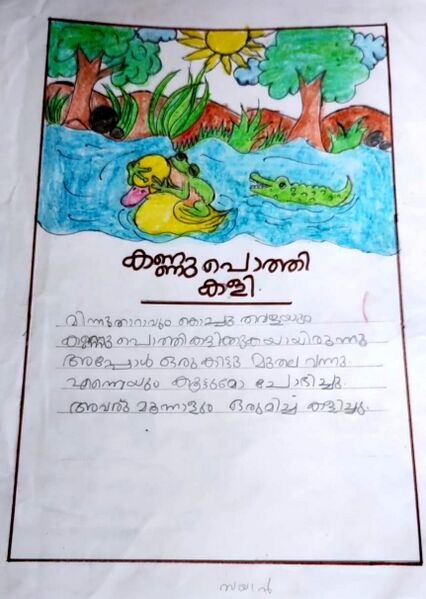 കണ്ണു പൊത്തി
കളി.
മിന്നുതാറാവും കൊച്ചു തവളയും
കണ്ണു പൊത്തി കളിക്കുകയായിരുന്നു
അപ്പോൾ ഒരു കിട്ടു മുതല വന്നു.
എന്നെയും കൂട്ടുമോ ചോദിച്ചു.
അവർ മൂന്നാളും ഒരുമിച്ച് കളിച്ചു.
സയാൻ